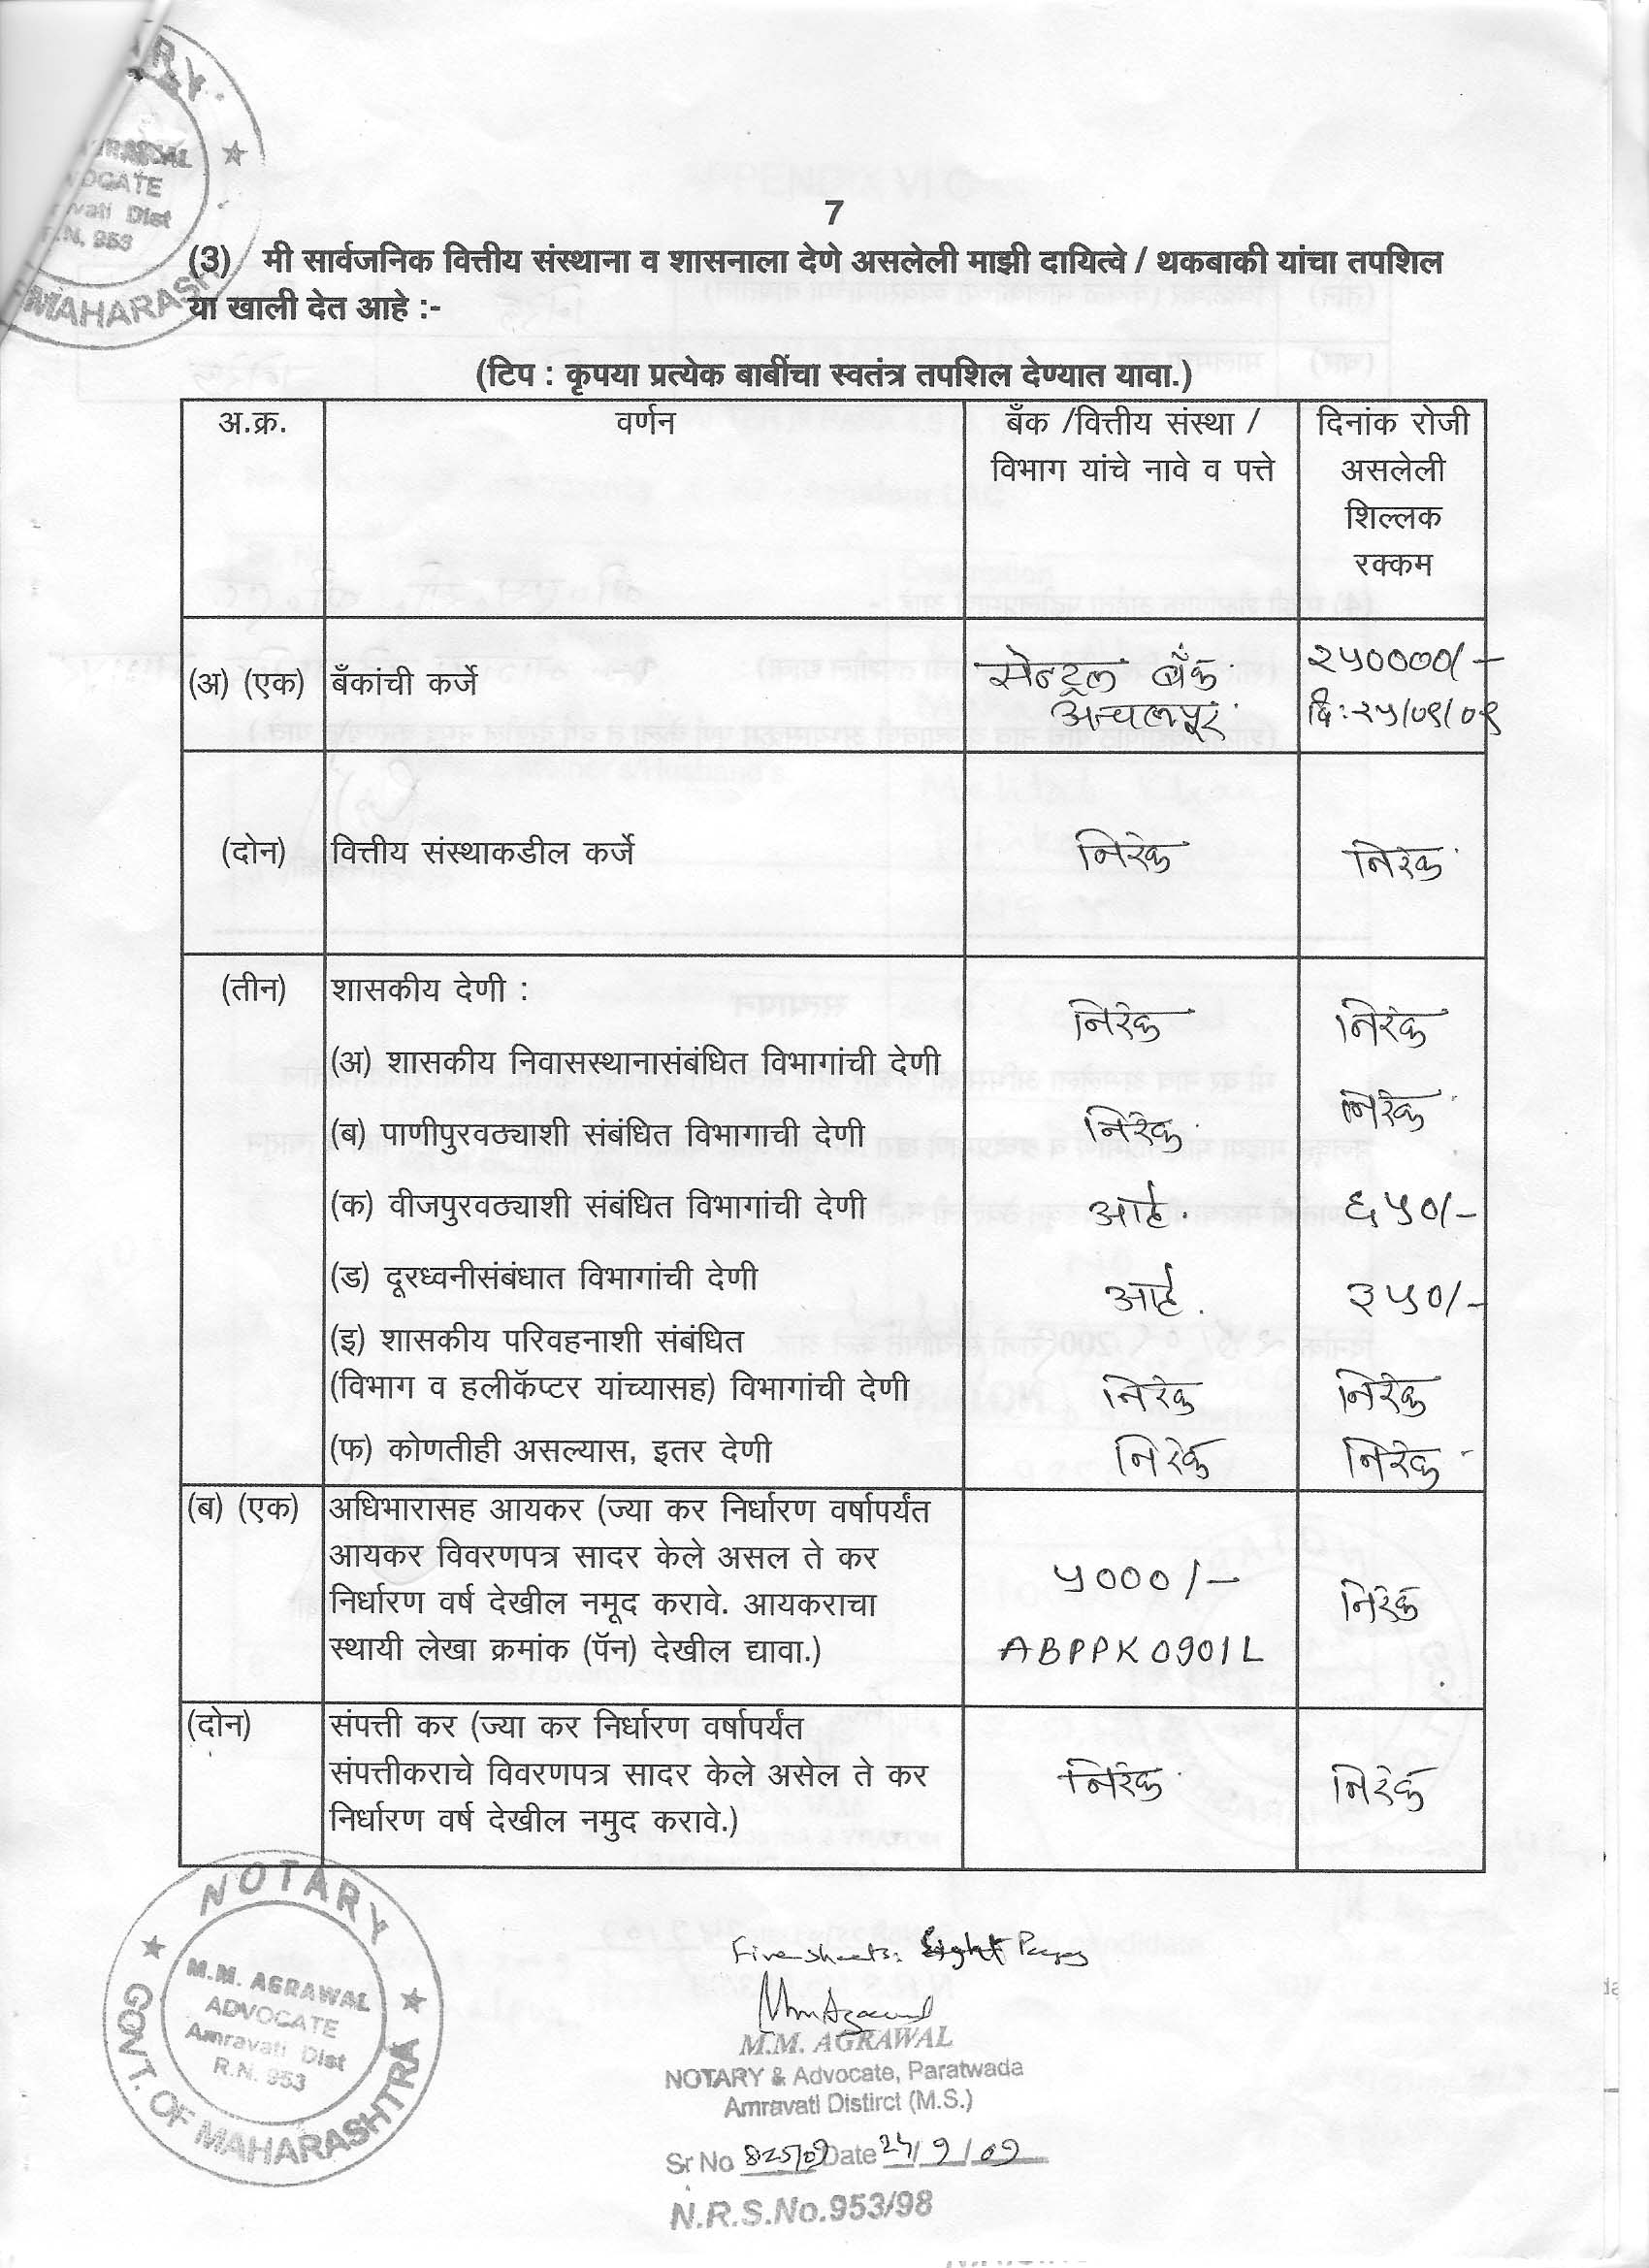 7
(3) मी सार्वजनिक वित्तीय संस्थाना व शासनाला देणे असलेली माझी दायित्वे / थकबाकी यांचा तपशिल
या खाली देत आहे :-
(टिप : कृपया प्रत्येक बाबींचा स्वतंत्र तपशिल देण्यात यावा.)
अ.क्र. वर्णन बँक /वित्तीय संस्था / दिनांक रोजी
विभाग यांचे नावे व पत्ते असलेली
शिल्लक
रक्कम
(अ) (एक) बँकांची कर्जे सेन्ट्रल बँक २५००००/-
अचलपूर दि:२५/०९/०९
(दोन) वित्तीय संस्थाकडील कर्जे निरंक निरंक
(तीन) शासकीय देणी :
(अ) शासकीय निवासस्थानासंबंधित विभागांची देणी निरंक निरंक
(ब) पाणीपुरवठ्याशी संबंधित विभागाची देणी निरंक निरंक
(क) वीजपुरवठ्याशी संबंधित विभागांची देणी आहे. ६५०/-
(ड) दूरध्वनीसंबंधात विभागांची देणी आहे. ३५०/-
(इ) शासकीय परिवहनाशी संबंधित
(विभाग व हलीकॅप्टर यांच्यासह) विभागांची देणी निरंक निरंक
(फ) कोणतीही असल्यास, इतर देणी निरंक निरंक
(ब) (एक) अधिभारासह आयकर (ज्या कर निर्धारण वर्षापर्यंत
आयकर विवरणपत्र सादर केले असल ते कर ५०००/-
निर्धारण वर्ष देखील नमूद करावे. आयकराचा निरंक
स्थायी लेखा क्रमांक (पॅन) देखील द्यावा.) ABPPK0901L
(दोन) संपत्ती कर (ज्या कर निर्धारण वर्षापर्यंत
संपत्तीकराचे विवरणपत्र सादर केले असेल ते कर निरंक निरंक
निर्धारण वर्ष देखील नमुद करावे.)
NOTARY
M.M. AGRAWAL
ADVOCATE
Amravati Dist
R.N. 953
GOVT. OF MAHARASHTRA
Five sheets. Eight Pages
M.M. AGRAWAL
NOTARY & Advocate, Paratwada
Amravati Distirct (M.S.)
Sr No 825/09 Date 25/9/09
N.R.S.No.953/98